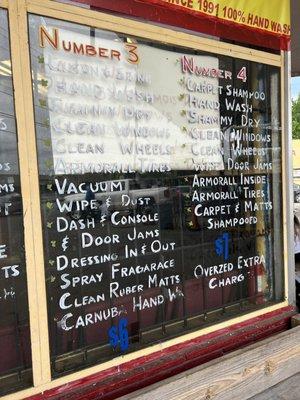 SINCE 1991 100% HAND W
Number 3
Hand Wash
Shammy Dry
Clean Windows
Clean Wheels
Armorall Tires
Vacuum
Wipe & Dust
Dash & Console
& Door Jams
Dressing In & Out
Spray Fragarace
Clean Ruber Matts
Carnuba Hand Wa
$6
Number 4
Carpet Shampoo
Hand Wash
Shammy Dry
Clean Windows
Clean Wheels
Door Jams
Armorall Inside
Armorall Tires
Carpet & Matts
Shampooed
Overzed Extra
Charge